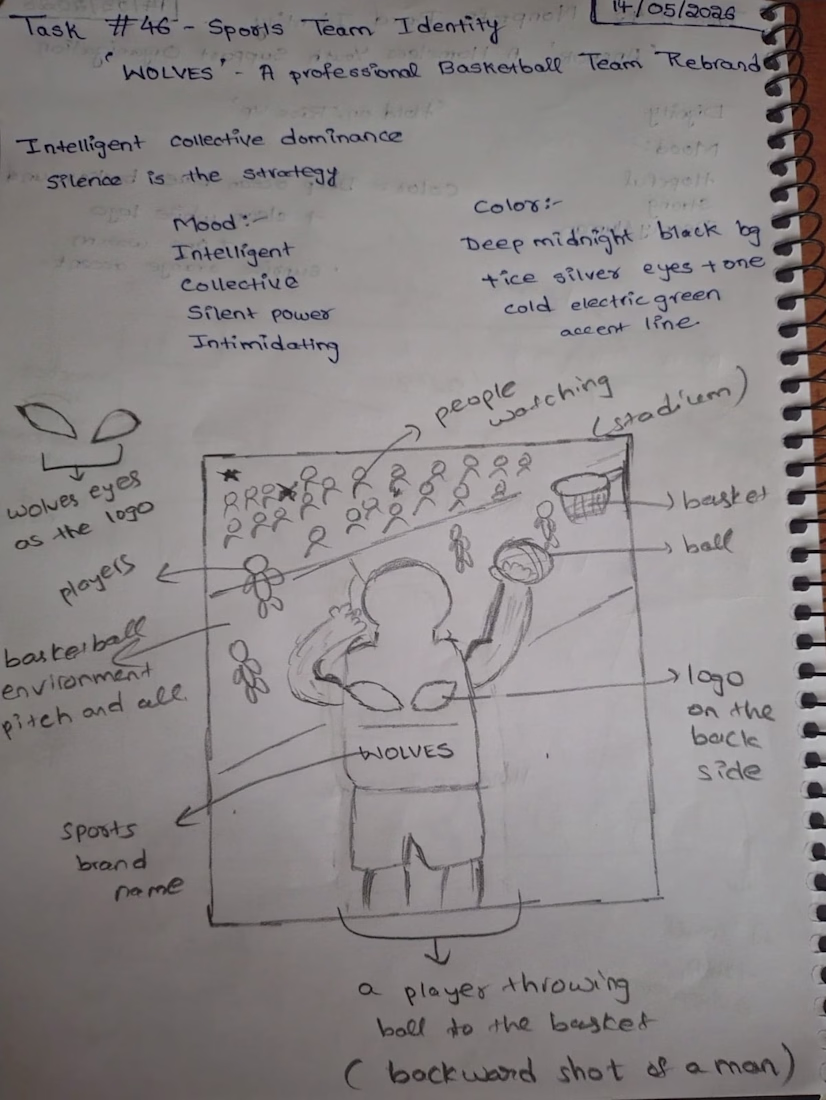 14/05/2026
Task #46 - Sports Team Identity
'WOLVES' - A professional Basketball Team Rebrand
Intelligent collective dominance
Silence is the strategy
Mood:-
Intelligent
Collective
Silent power
Intimidating
Color:-
Deep midnight black bg
+ice silver eyes + one
cold electric green
accent line.
people
watching
(stadium)
wolves eyes
as the logo
basket
ball
players
basketball
environment
pitch and all.
logo
on the
back
side
WOLVES
sports
brand
name
a player throwing
ball to the basket
(backward shot of a man)